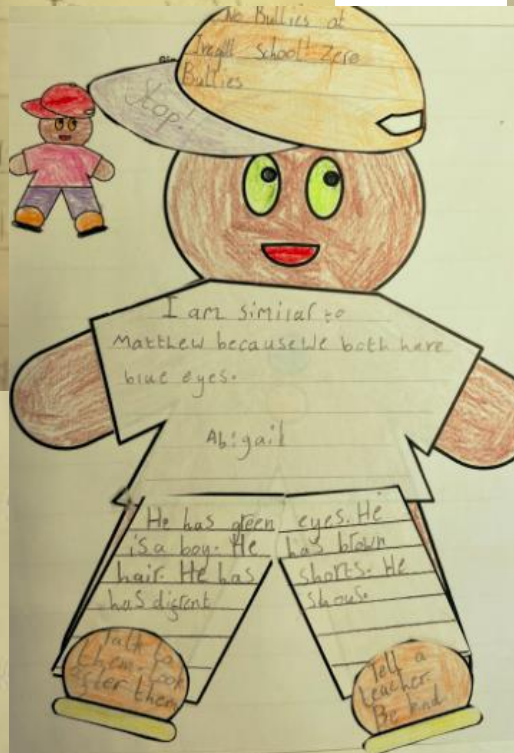 No Bullies at
Iregill School! Zero
Bullies
Stop!
I am similar to
Matthew because We both have
blue eyes.
Abigail
He has green eyes. He
is a boy. He has brown
hair. He has shorts. He
has difrent shous.
Talk to
them. Look
after them
Tell a
teacher.
Be kind